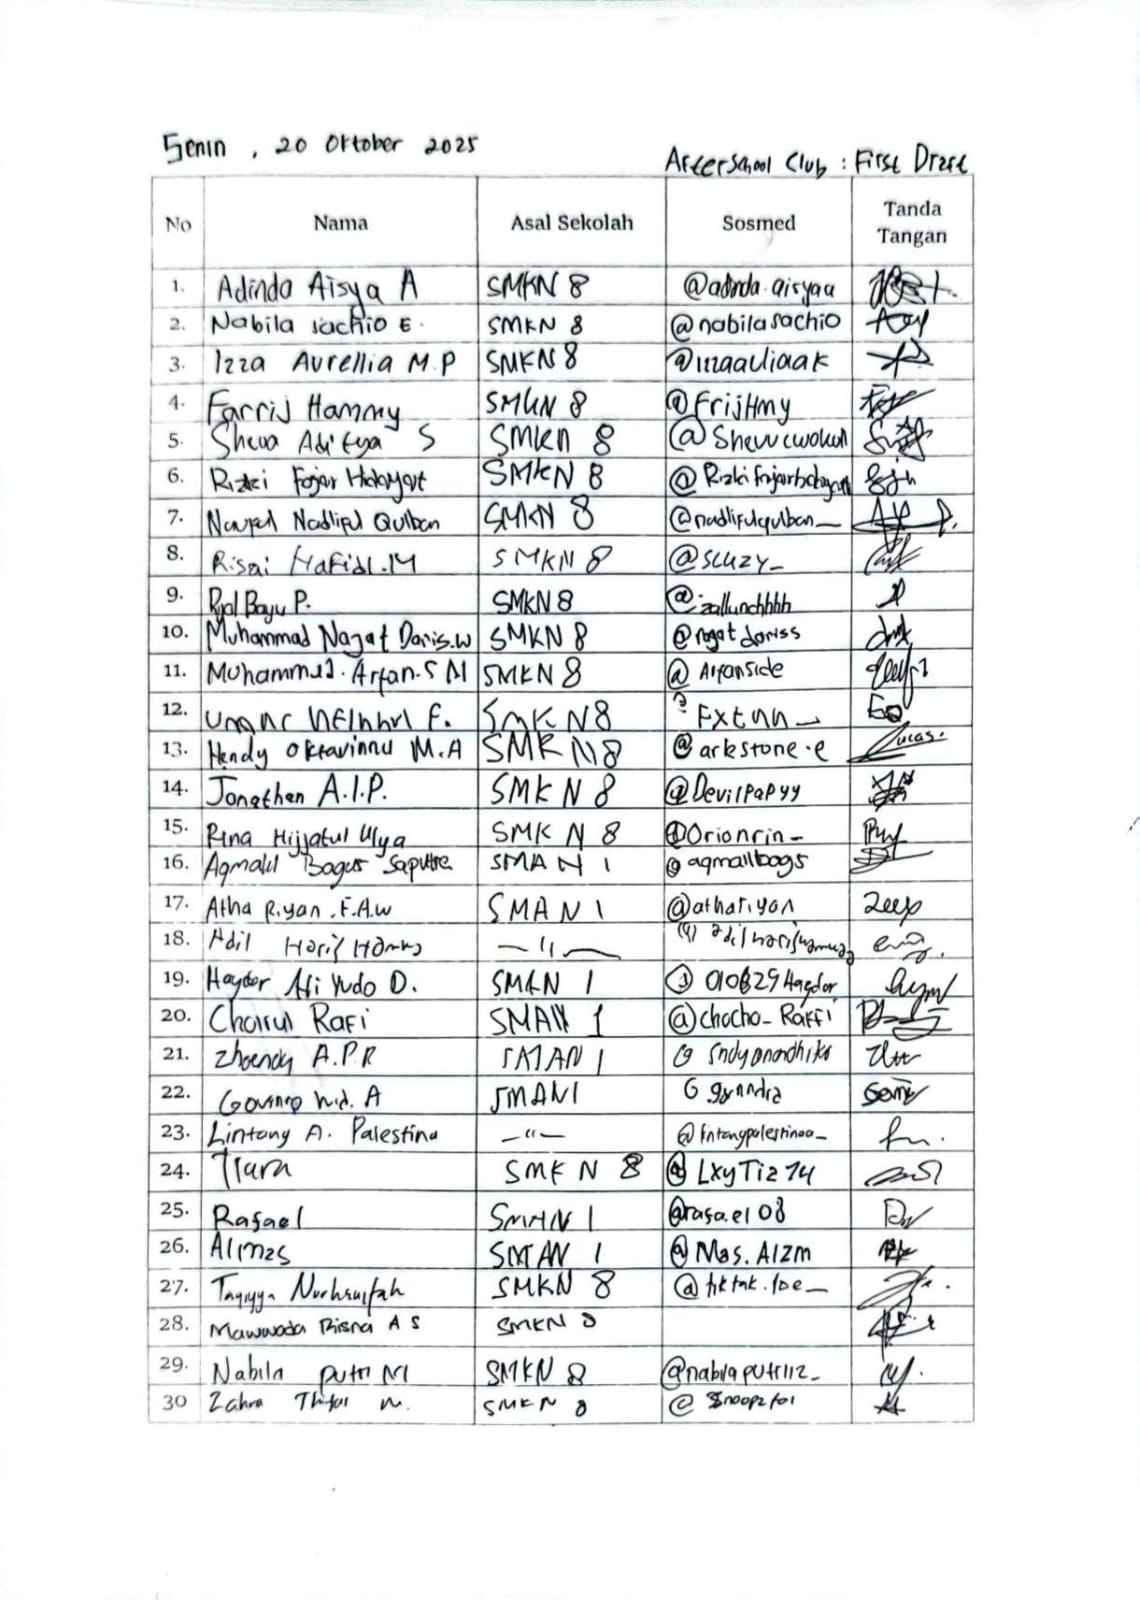 Senin , 20 Oktober 2025
Afterschool Club : First Draft
No Nama Asal Sekolah Sosmed Tanda Tangan
1. Adinda Aisya A SMKN 8 @adinda.aisyaa
2. Nabila Sachio E. SMKN 8 @nabilasachio
3. Izza Aurellia M.P SMKN 8 @izzaauliaak
4. Farrij Hammy SMKN 8 @FrijHmy
5. Sheva Aditya S SMKN 8
6. Rizki Fajar Hidayat SMKN 8
7. Naufal Nadliful Qulban SMKN 8 @nadlifulqulban_
8. Risqi Hafidl.M SMKN 8 @scuzy_
9. Bayu P. SMKN 8 @izallunchhhh
10. Muhammad Nagat Danis.W SMKN 8 @nagatdaniss
11. Muhammad. Arfan.S M SMKN 8 @Arfanside
12. F. SMKN 8
13. Hendy Oktavinnu M.A SMKN 8 @arkstone.e
14. Jonathan A.I.P. SMKN 8 @Devilpapyy
15. Rina Hijjatul Ulya SMKN 8 @Orionrin_
16. Aqmall Bagus Saputra SMAN 1 @aqmallbags
17. Atha Riyan .F.A.W SMAN 1 @athariyan Zeep
18. Adil Harif —"—
19. Haydar Ali Yudo D. SMAN 1 @010829Haydar
20. Choirul Rafi SMAN 1 @chocho_Raffi
21. A.P.R SMAN 1
22. A SMAN1
23. Lintang A. Palestina —"— @lintangpalestinaa_
24. Tiara SMKN 8 @LxyTiz74
25. Rafael SMAN 1 @rafa.el08
26. SMAN 1 @Mas.Alzm
27. SMKN 8
28. Mawwada Risna A S SMKN 8
29. Nabila Putri M SMKN 8 @nabilaputri112_
30 Zahra M. SMKN 8